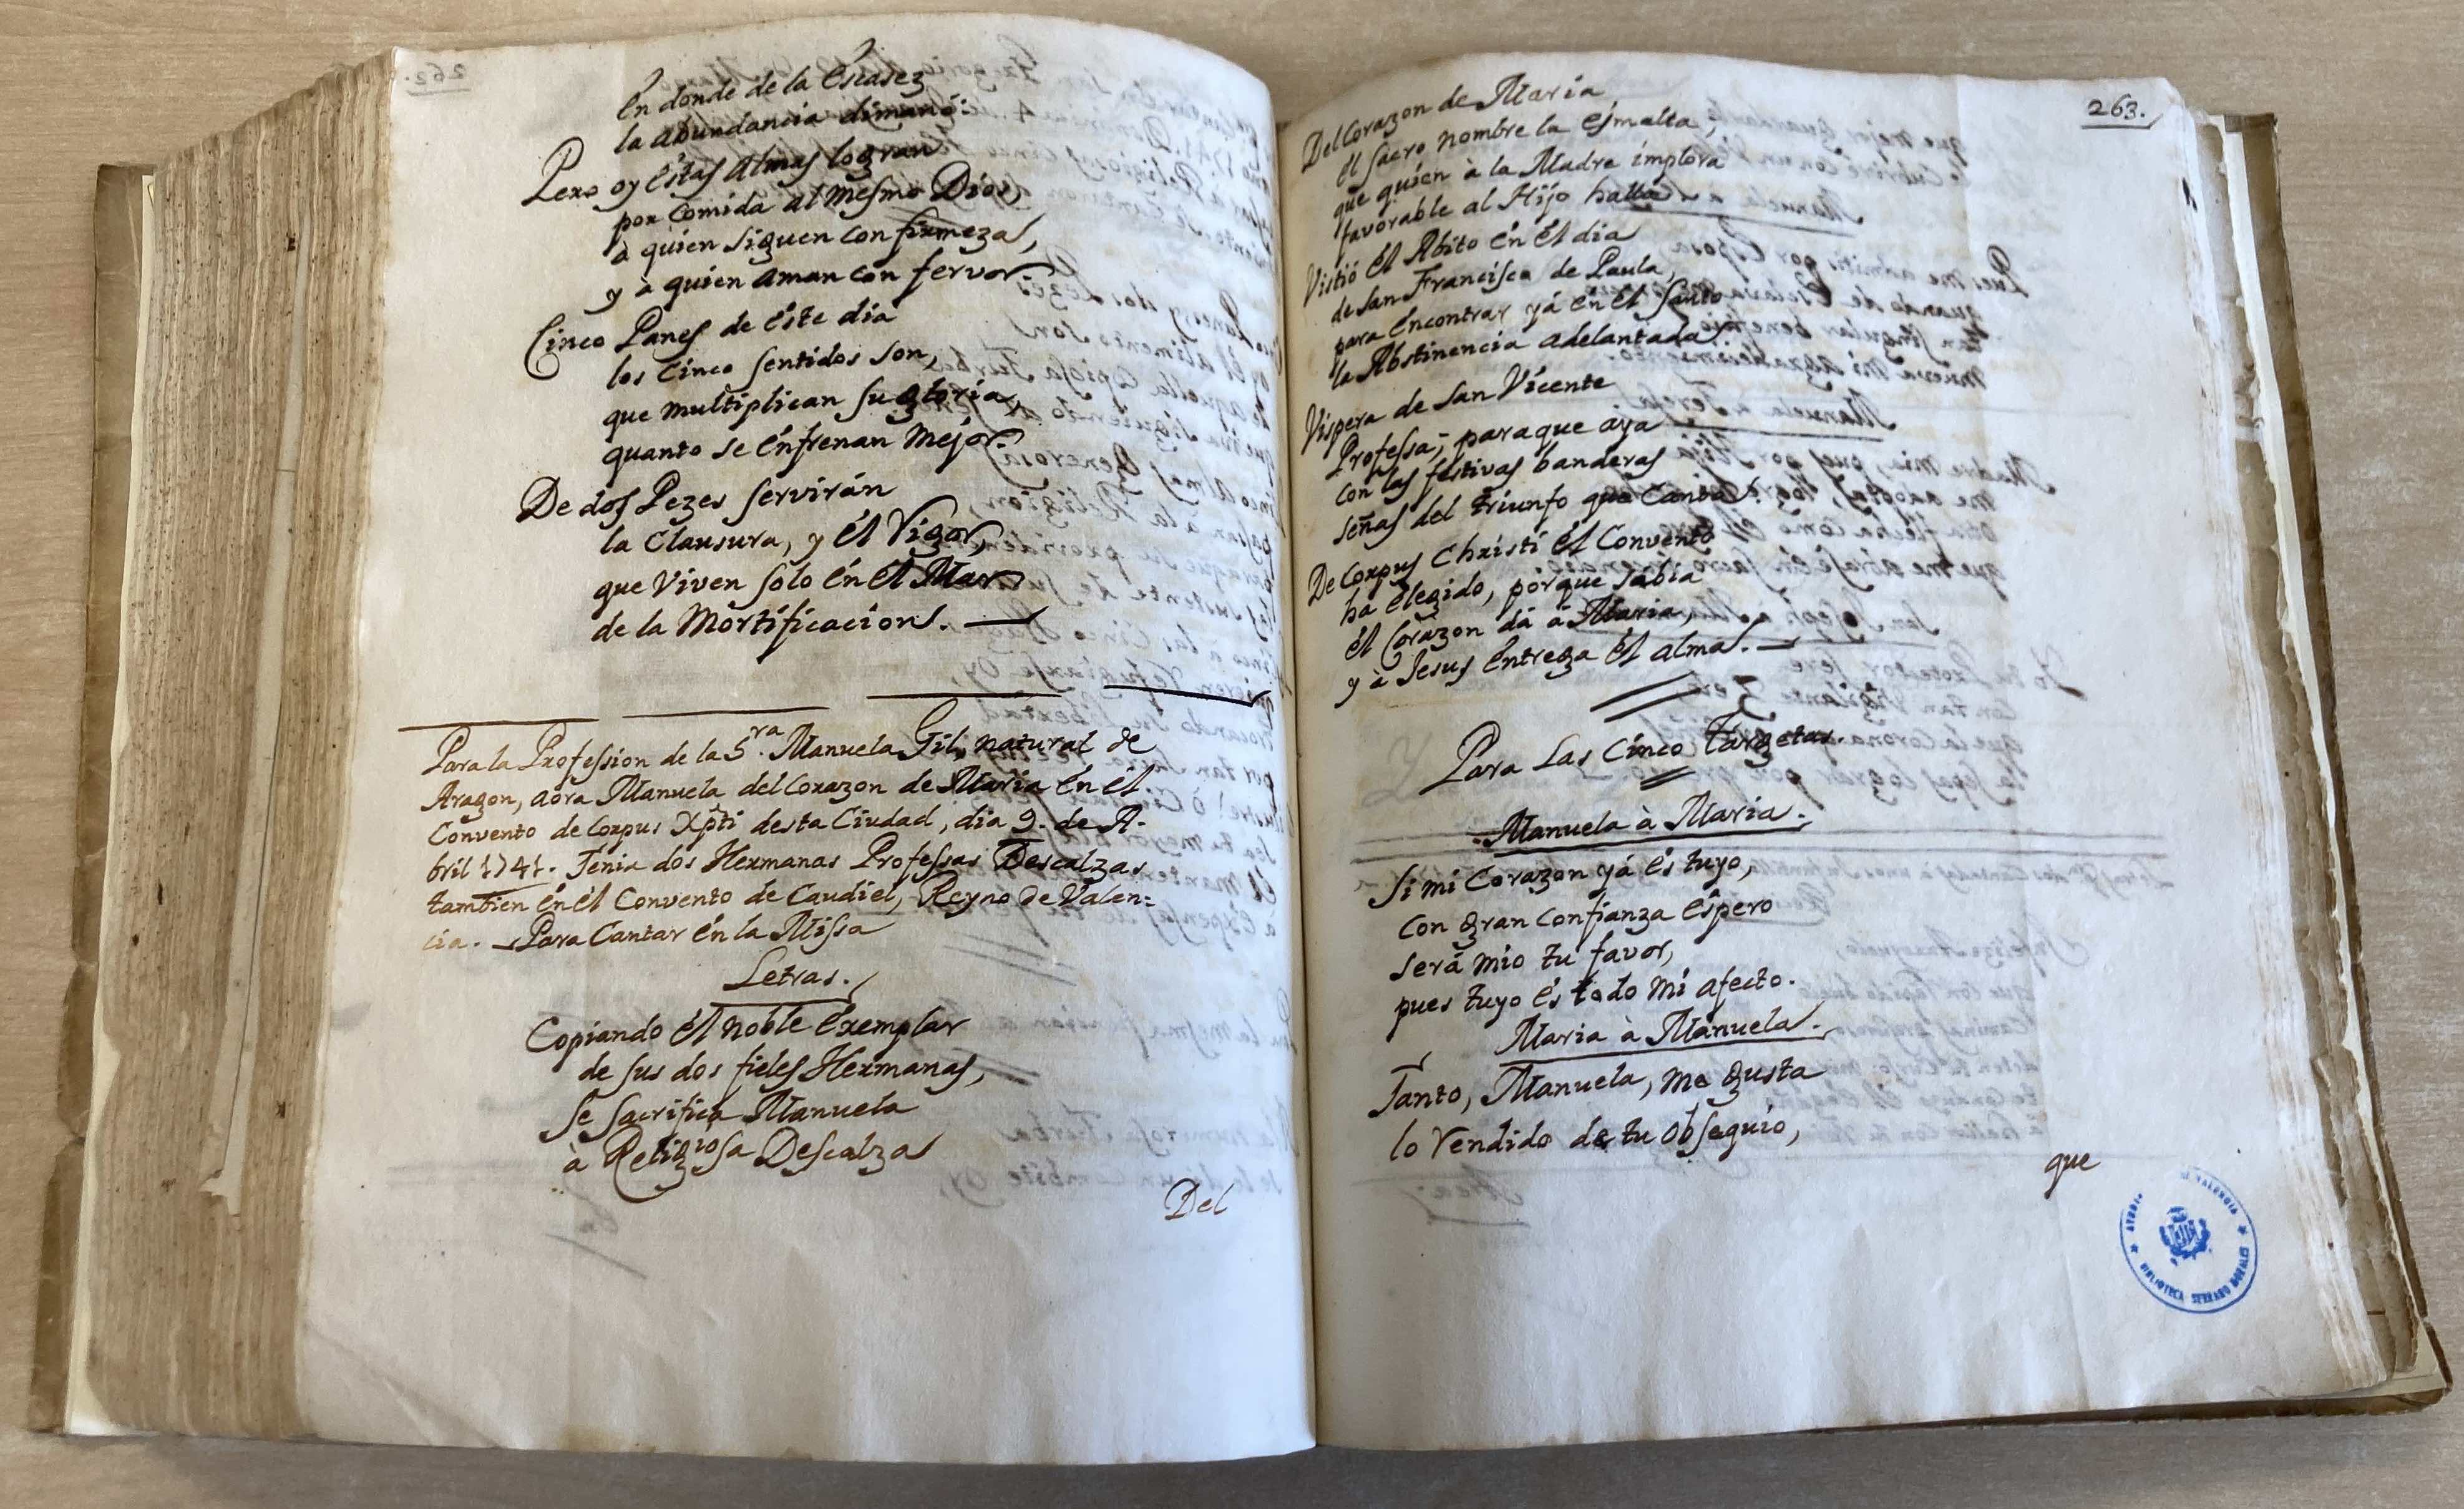 En donde de la Escasez
la abundancia dimanò:
Pero oy éstas Almas logran
por Comida al mesmo Dios,
à quien siguen con firmezas,
y à quien aman con fervor.
Cinco Panes de éste dia
los Cinco sentidos son,
que multiplican su gloria,
quanto se énfrenan mejor.
De dos Pezes servirán
la Clausura, y él Vigor,
que viven solo én él Mar
de la Mortificacion. —
Para la Profession de la S.ra Manuela Gil, natural de
Aragon, aora Manuela del Corazon de Maria én él
Convento de Corpus Xpti desta Ciudad, dia 9. de A-
bril 1741. Tenia dos Hermanas Professas Descalzas
tambien én él Convento de Caudiel, Reyno de Valen=
cia. Para Cantar én la Missa
Letras.
Copiando él noble éxemplar
de sus dos fieles Hermanas,
se sacrifica Manuela
à Religiosa Descalza
Del
263.
Del Corazon de Maria
él sacro nombre la ésmalta,
que quien à la Madre implora
favorable al Hijo halla
Vistió él Abito én él dia
de San Francisco de Paula,
para éncontrar yá én él Santo
la Abstinencia adelantada.
Vispera de San Vicente
Professa, para que aya
con las festivas banderas
señas del triunfo que canta.
De Corpus Christi él Convento
ha élegido, porque sabia
él Corazon dá à Maria,
y à Jesus éntrega él alma. —
Para Las Cinco Targetas.
Manuela à Maria.
Si mi Corazon yá és tuyo,
con gran confianza éspero
será mio tu favor,
pues tuyo és todo mi afecto.
Maria à Manuela.
Tanto, Manuela, me gusta
lo rendido de tu obsequio,
que
VALENCIA
BIBLIOTECA SERRANO MORALES